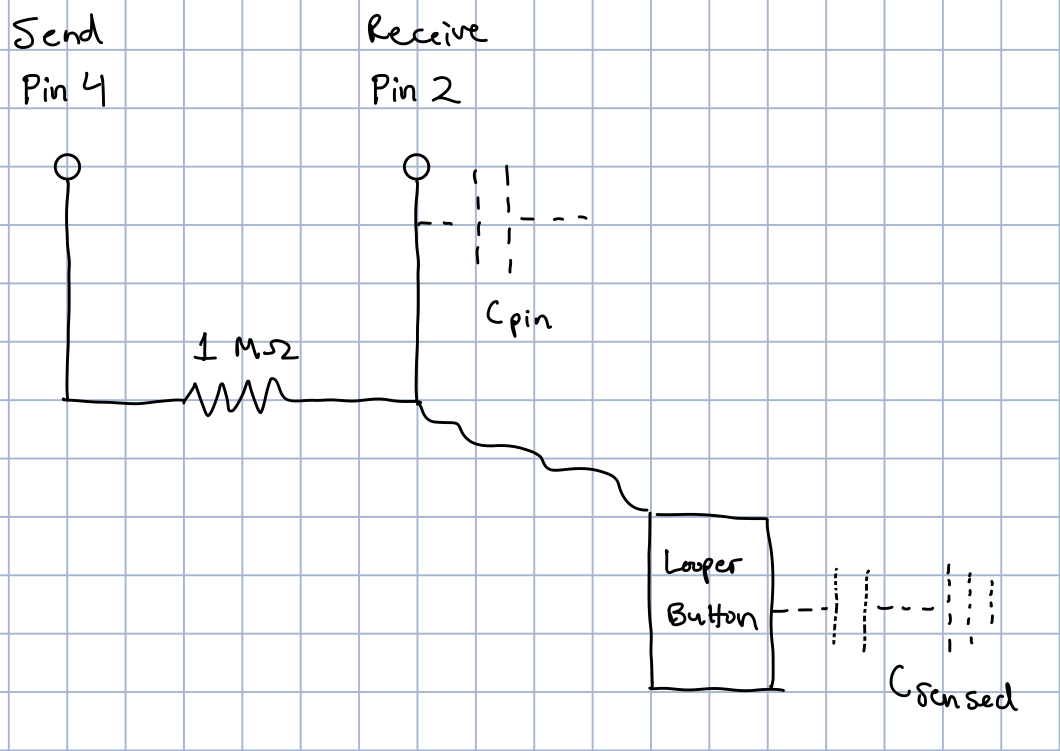 Send
Pin 4
Receive
Pin 2
Cpin
1 MΩ
Looper
Button
Csensed